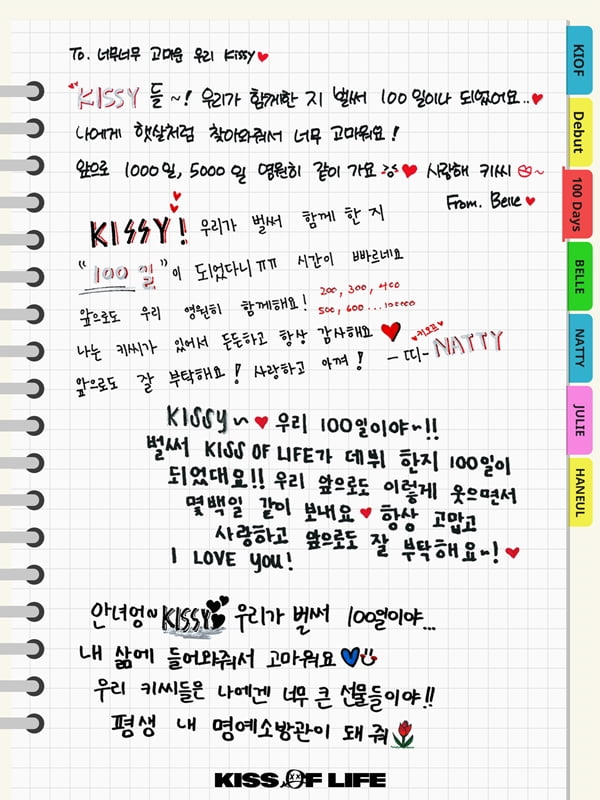 To. 너무너무 고마운 우리 Kissy♥
KISSY 들 ~! 우리가 함께한 지 벌써 100일이나 되었어요..♥
나에게 햇살처럼 찾아와줘서 너무 고마워요!
앞으로 1000일, 5000일 영원히 같이 가요 ♥ 사랑해 키씨 ~
From. Belle ♥
KISSY! 우리가 벌써 함께 한 지
“100일”이 되었다니 ㅠㅠ 시간이 빠르네요
앞으로도 우리 영원히 함께해요! 200, 300, 400
500, 600...
나는 키씨가 있어서 든든하고 항상 감사해요 ♥
앞으로도 잘 부탁해요! 사랑하고 아껴! -띠- ♥키오프♥ NATTY
KISSY~ ♥ 우리 100일이야~!!
벌써 KISS OF LIFE가 데뷔 한지 100일이
되었대요!! 우리 앞으로도 이렇게 웃으면서
몇백일 같이 보내요 ♥ 항상 고맙고
사랑하고 앞으로도 잘 부탁해요~! ♥
I LOVE YOU!
안녀엉~ KISSY 우리가 벌써 100일이야...
내 삶에 들어와줘서 고마워요
우리 키씨들은 나에겐 너무 큰 선물들이야!!
평생 내 명예소방관이 돼줘
KISS OF LIFE
KIOF
Debut
100 Days
BELLE
NATTY
JULIE
HANEUL